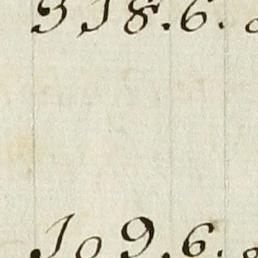 318.6.
109.6.